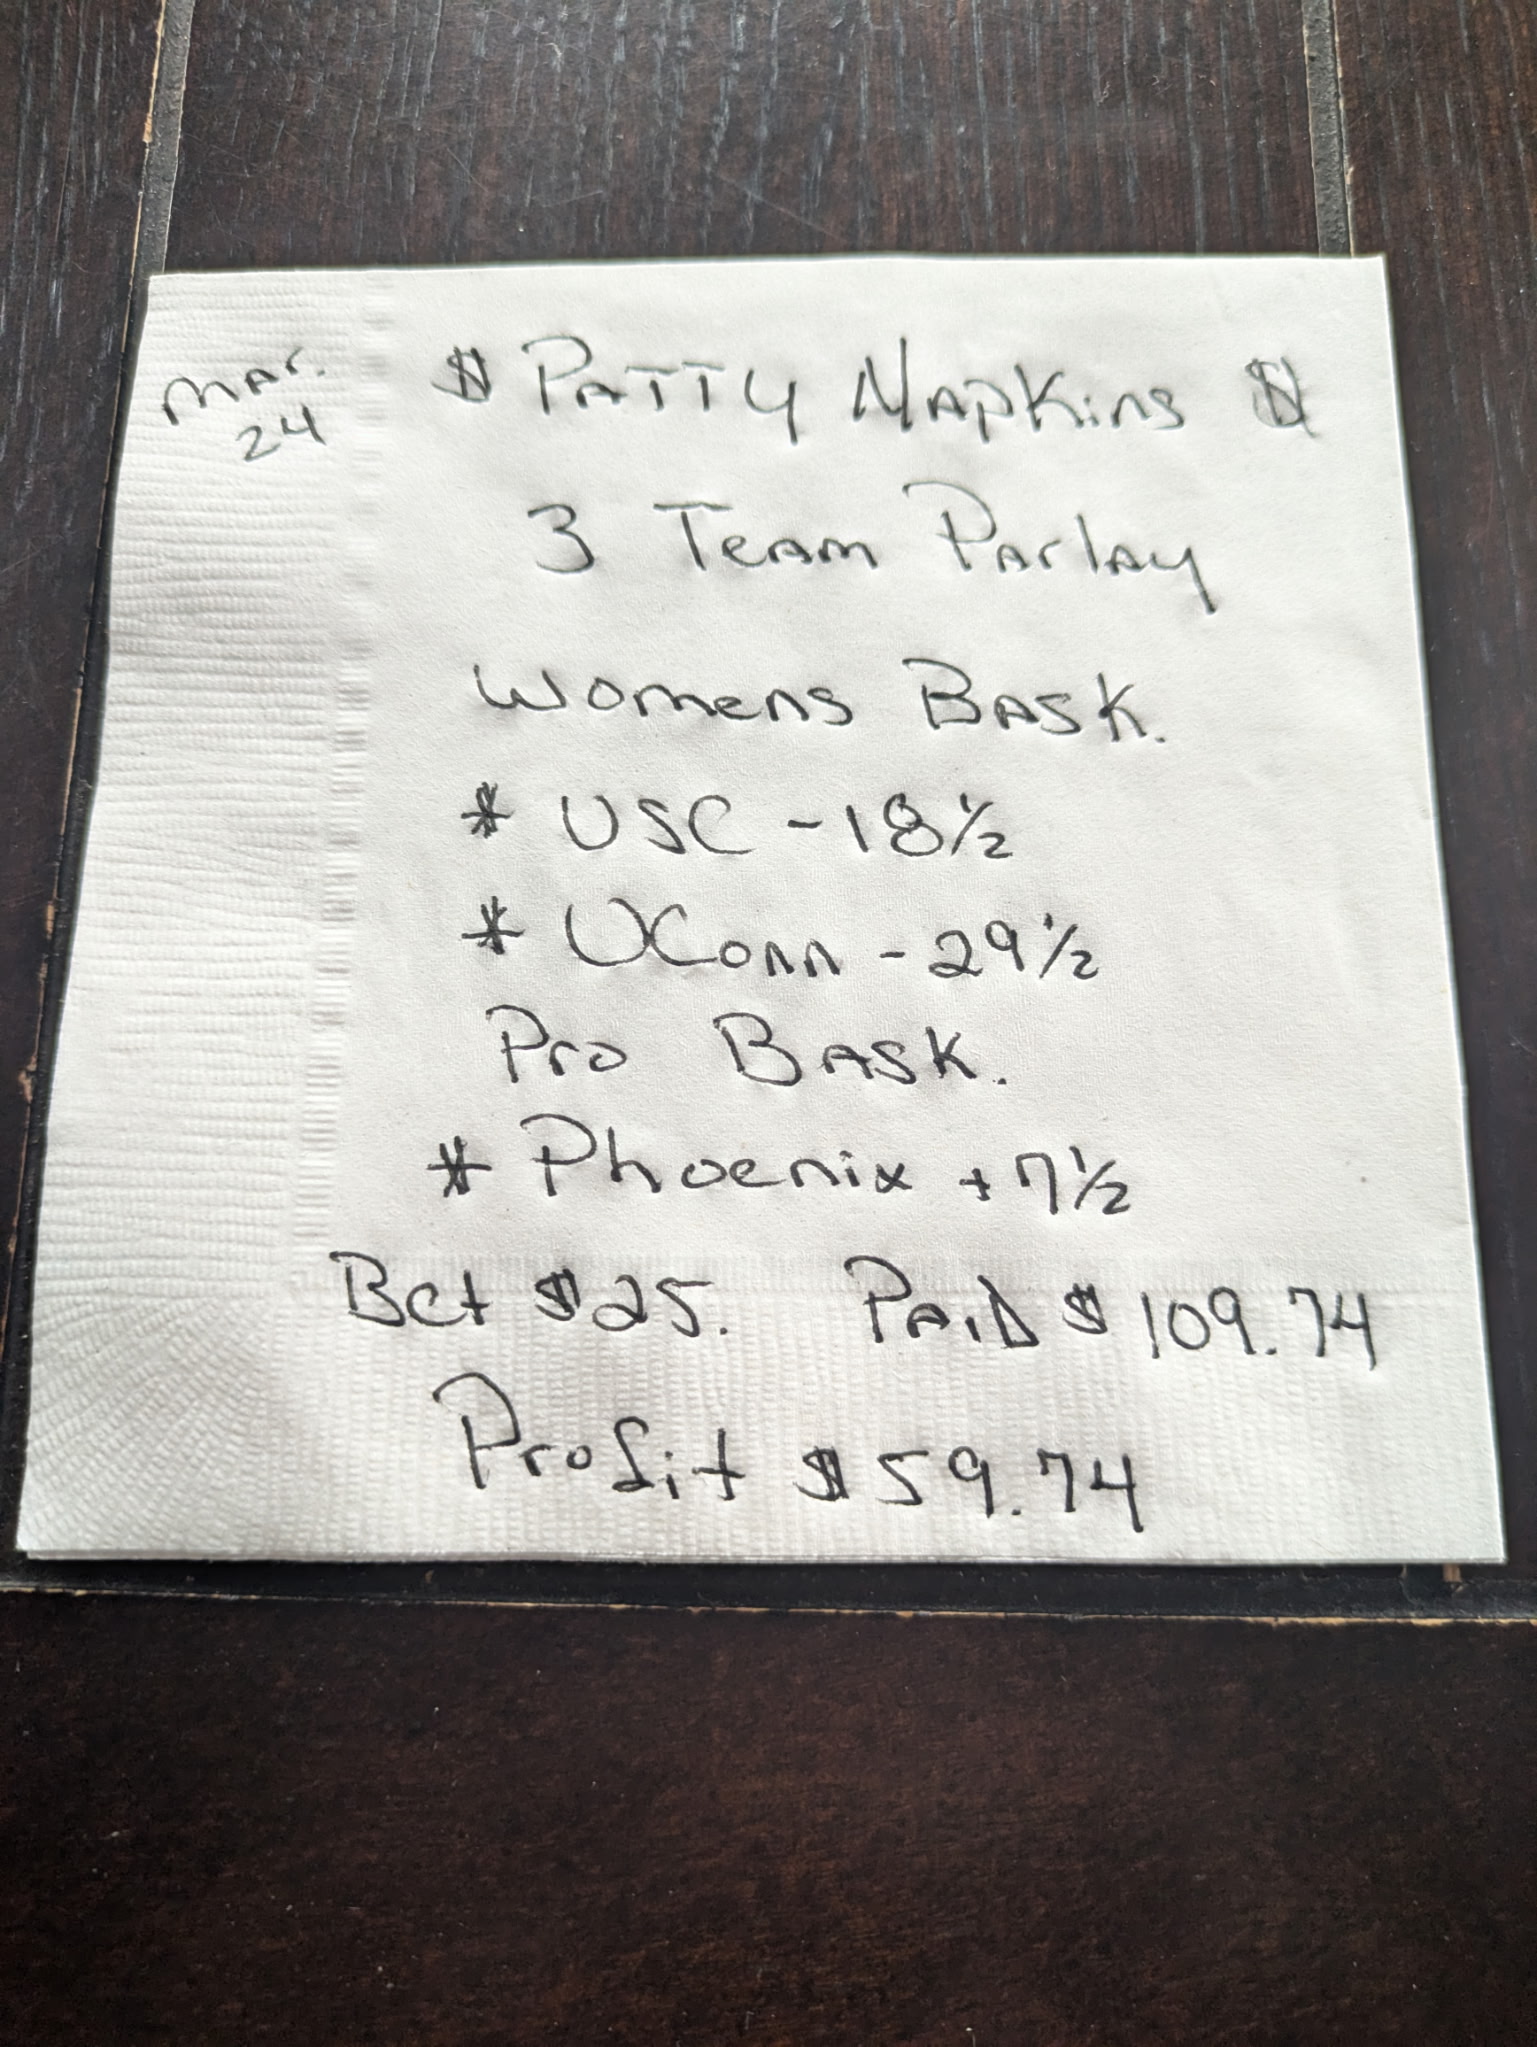 Mar.
24
$ Patty Napkins $
3 Team Parlay
Womens Bask.
* USC -18½
* UConn -29½
Pro Bask.
* Phoenix +7½
Bet $25. Paid $109.74
Profit $59.74